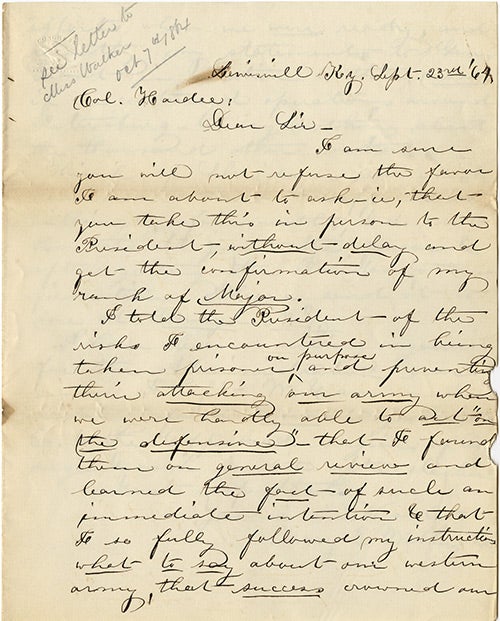 see letter to
Miss Walker
Oct 7th 1864
Louisvill Ky, Sept. 23rd '64
Col. Hardee;
Dear Sir—
I am sure
you will not refuse the favor
I am about to ask—ie, that
you take this in person to the
President without delay and
get the confirmation of my
rank of Major.
I told the President of the
risks I encountered in being
on purpose
taken prisoner and preventing
their attacking our army when
we were hardly able to act "on
the defensive"—that I found
them on general review and
learned the fact of such an
immediate intention & that
I so fully followed my instruction
what to say about our western
army, that success crowned our